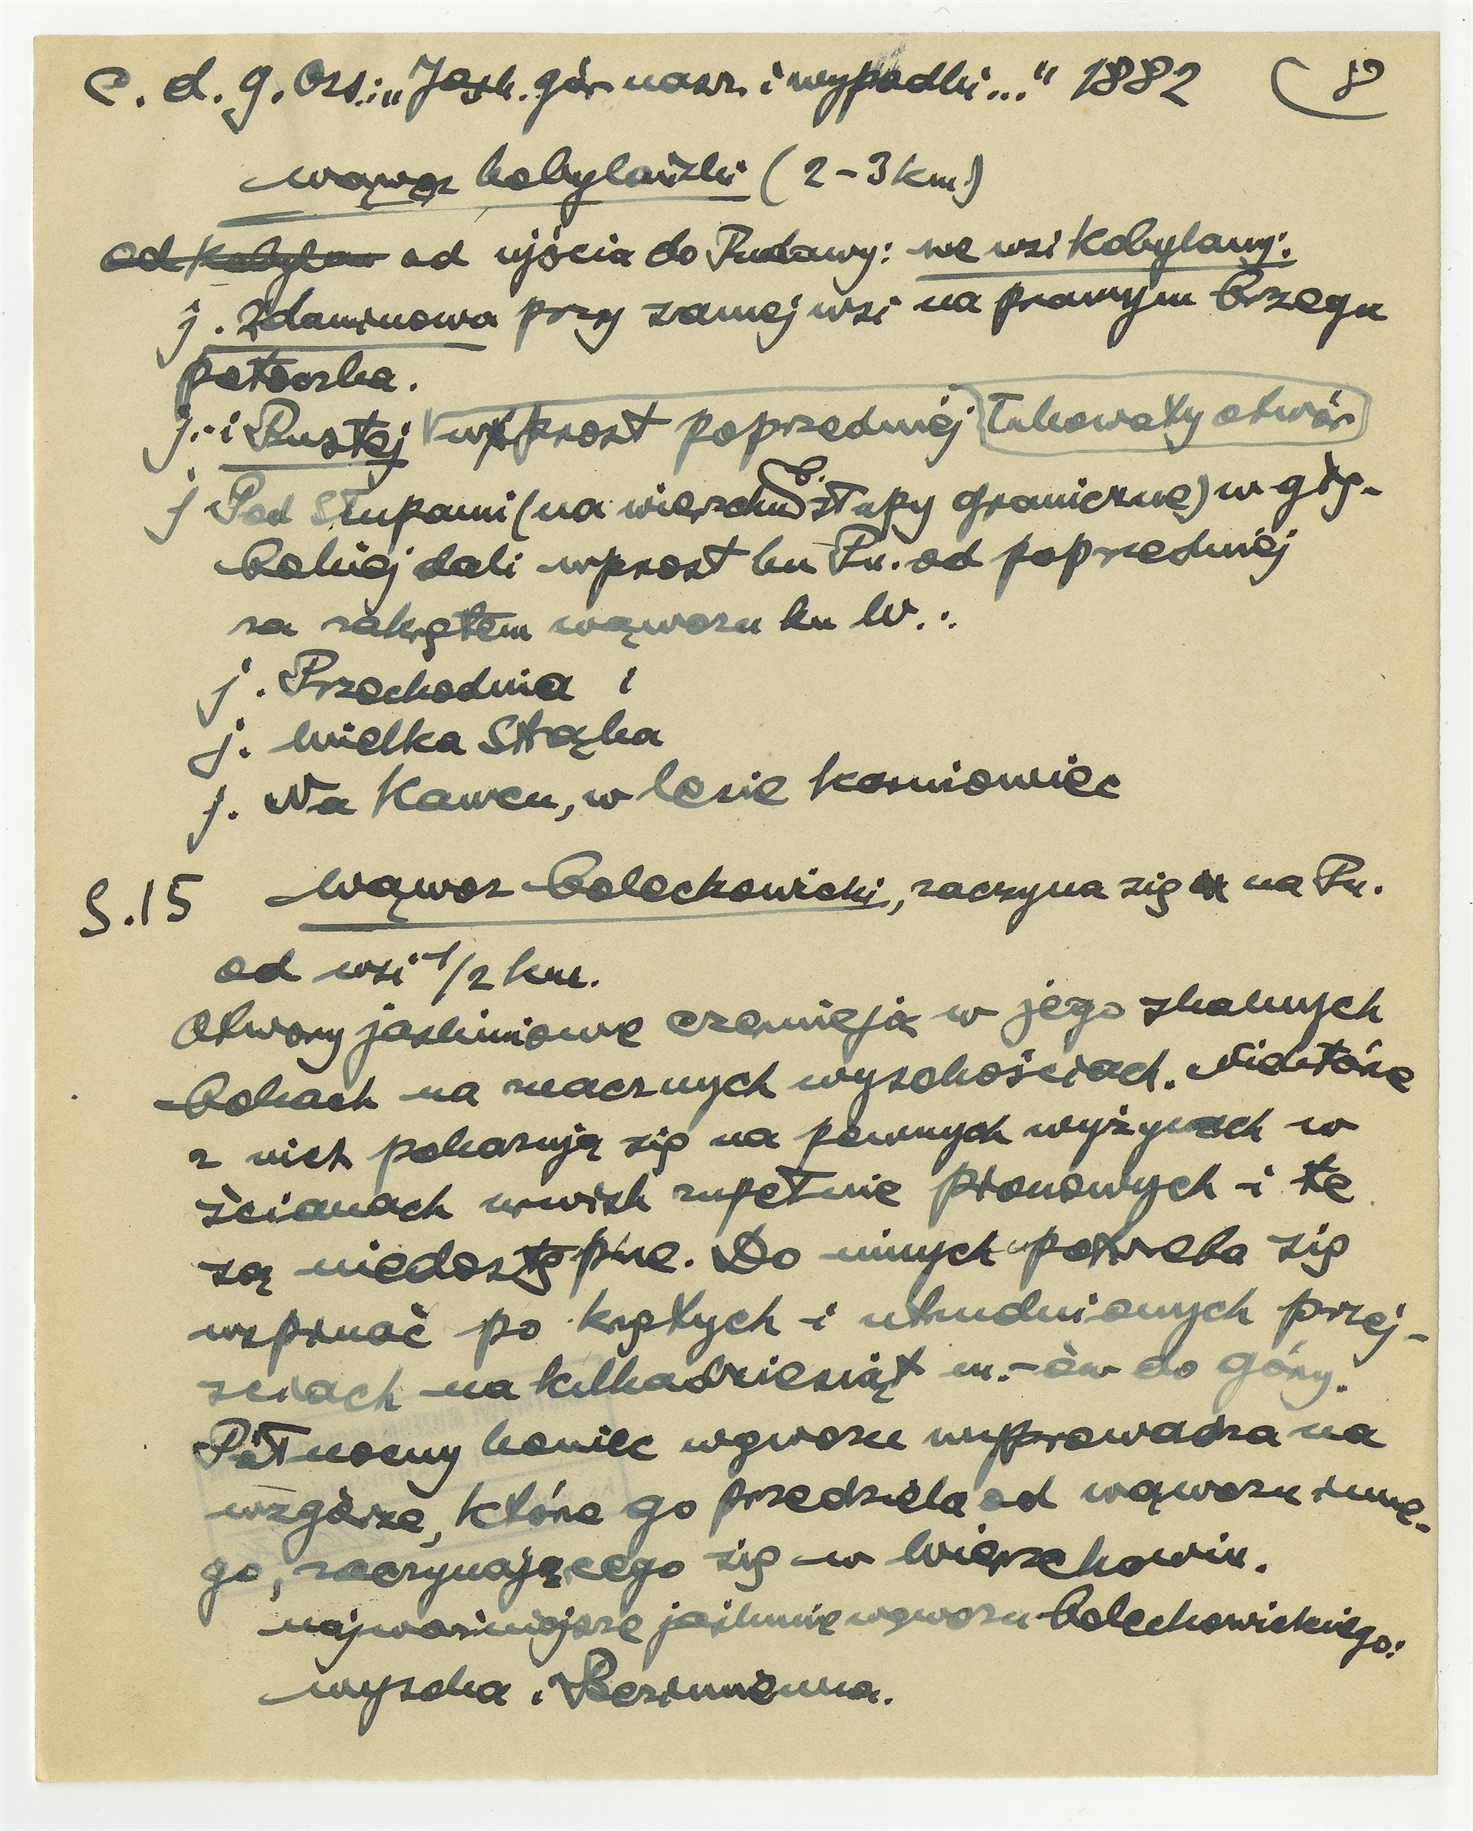 c. d. G. Oss.: „Jask. gór nasz. i wypadki..." 1882
wąwóz kobylański (2-3 km)
od Kobylan od ujścia do Rudawy: we wsi Kobylany:
j. Zdaminowa przy samej wsi na prawym brzegu
potoczka.
j. i Pustej wprost poprzedniej łukowaty otwór
j Pod Słupami (na wierzchu b. słupy graniczne) w głę-
bokiej dali wprost ku Pn. od poprzedniej
za zakrętem wąwozu ku W.:
j. Przechodnia i
j. Wielka Strąka
j. Na Kawcu, w lesie Kosmowiec
S. 15 Wąwóz bolechowicki, zaczyna się na Pn.
od wsi 1/2 km.
Otwory jaskiniowe czernieją w jego skalnych
bokach na znacznych wysokościach. Niektóre
z nich pokazują się na pewnych wyżynach w
ścianach urwisk zupełnie pionowych i te
są niedostępne. Do innych potrzeba się
wspinać po krętych i utrudnionych przej-
ściach na kilkadziesiąt m.-ów do góry.
Północny koniec wąwozu wyprowadza na
wzgórze, które go przedziela od wąwozu inne-
go, zaczynającego się w Wierzchowiu.
najważniejsze jaskinie wąwozu bolechowickiego:
wysoka i Bezimienna.